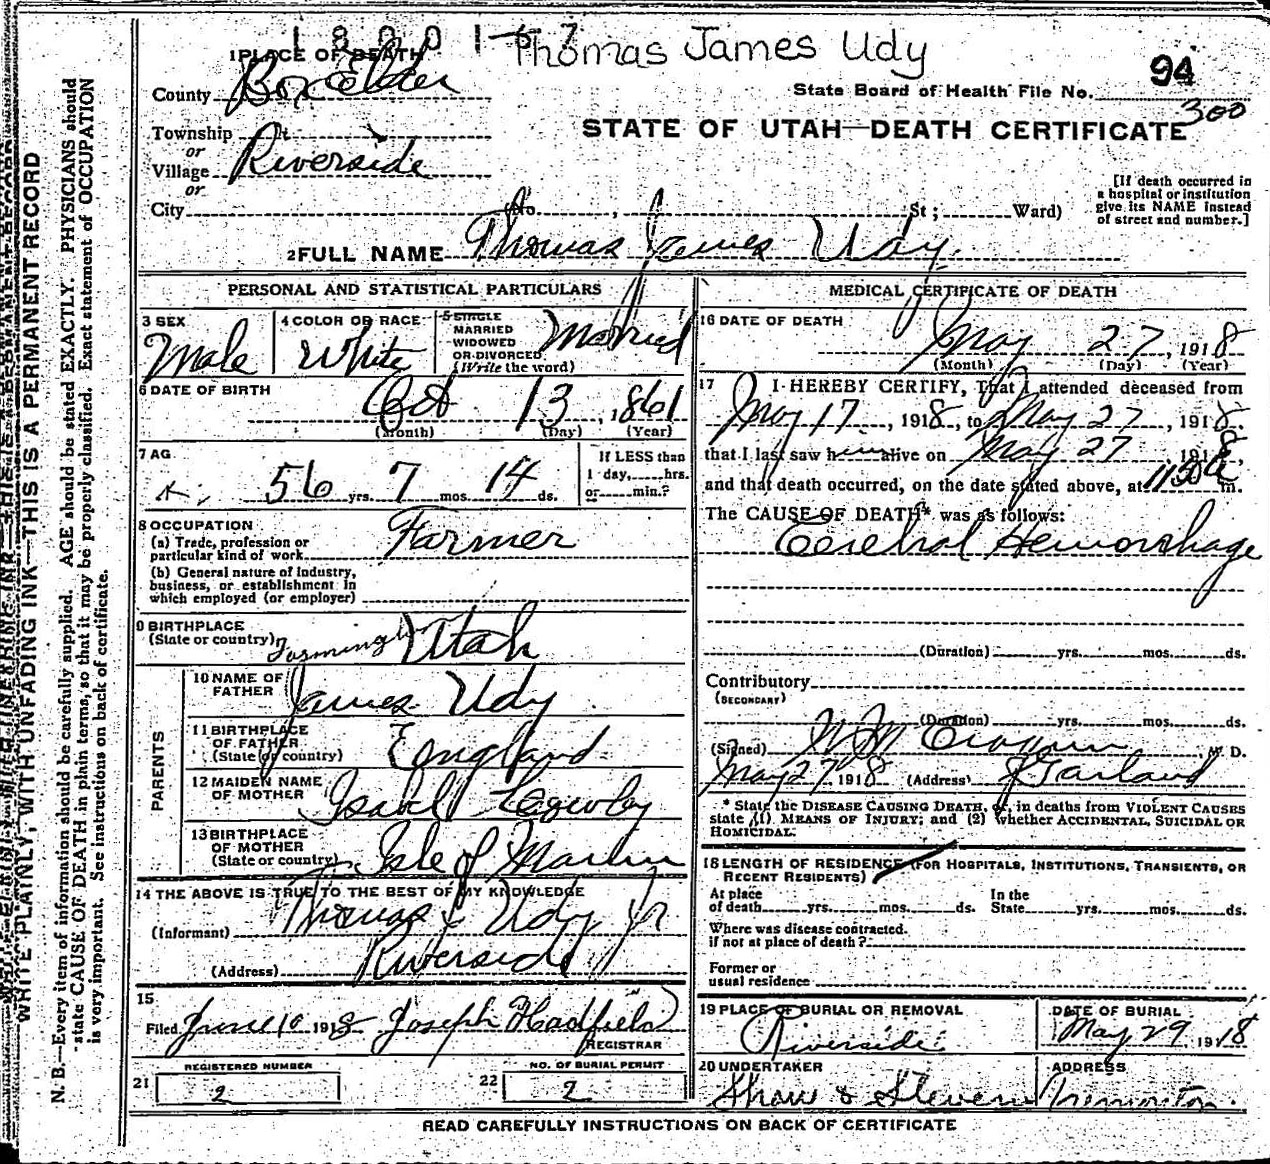 1 8 0 0 1 6 7
Thomas James Udy
1 PLACE OF DEATH
County Box Elder
State Board of Health File No. 94
300
STATE OF UTAH—DEATH CERTIFICATE
Township
or
Village Riverside
or
City No. , St; Ward)
[If death occurred in
a hospital or institution
give its NAME instead
of street and number.]
2 FULL NAME Thomas James Udy.
PERSONAL AND STATISTICAL PARTICULARS
3 SEX Male
4 COLOR OR RACE White
5 SINGLE
MARRIED
WIDOWED
OR DIVORCED
(Write the word) Married
6 DATE OF BIRTH
Oct 13, 1861
(Month) (Day) (Year)
7 AG
56 yrs. 7 mos. 14 ds.
If LESS than
1 day, hrs.
or min.?
8 OCCUPATION
(a) Trade, profession or
particular kind of work Farmer
(b) General nature of industry,
business, or establishment in
which employed (or employer)
9 BIRTHPLACE
(State or country) Farmington Utah
PARENTS
10 NAME OF
FATHER James Udy
11 BIRTHPLACE
OF FATHER
(State or country) England
12 MAIDEN NAME
OF MOTHER Isabel
13 BIRTHPLACE
OF MOTHER
(State or country) Isle of
14 THE ABOVE IS TRUE TO THE BEST OF MY KNOWLEDGE
(Informant) Thomas J Udy Jr
(Address) Riverside
15
Filed June 10 1918 Joseph Hadfield
REGISTRAR
REGISTERED NUMBER
21 2
NO. OF BURIAL PERMIT
22 2
MEDICAL CERTIFICATE OF DEATH
16 DATE OF DEATH
May 27, 1918
(Month) (Day) (Year)
17 I HEREBY CERTIFY, That I attended deceased from
May 17, 1918, to May 27, 1918.
that I last saw him alive on May 27 1918,
and that death occurred, on the date stated above, at 1150 a m.
The CAUSE OF DEATH* was as follows:
Cerebral Hemorrhage
(Duration) yrs. mos. ds.
Contributory
(SECONDARY)
(Duration) yrs. mos. ds.
(Signed) , M. D.
May 27 1918 (Address) Garland
* State the DISEASE CAUSING DEATH, or, in deaths from VIOLENT CAUSES
state (1) MEANS OF INJURY; and (2) whether ACCIDENTAL, SUICIDAL OR
HOMICIDAL.
18 LENGTH OF RESIDENCE (FOR HOSPITALS, INSTITUTIONS, TRANSIENTS, OR
RECENT RESIDENTS)
At place
of death yrs. mos. ds.
In the
State yrs. mos. ds.
Where was disease contracted.
if not at place of death?
Former or
usual residence
19 PLACE OF BURIAL OR REMOVAL
Riverside
DATE OF BURIAL
May 29 1918
20 UNDERTAKER
Shaw & Stevens
ADDRESS
Tremonton.
READ CAREFULLY INSTRUCTIONS ON BACK OF CERTIFICATE
WRITE PLAINLY, WITH UNFADING INK—THIS IS A PERMANENT RECORD
N. B.—Every item of information should be carefully supplied. AGE should be stated EXACTLY. PHYSICIANS should
state CAUSE OF DEATH in plain terms, so that it may be properly classified. Exact statement of OCCUPATION
is very important. See instructions on back of certificate.